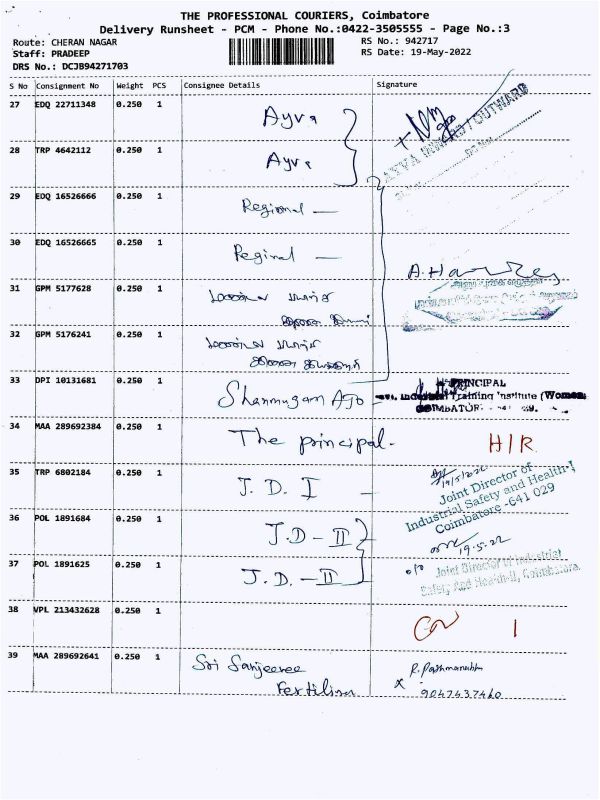 THE PROFESSIONAL COURIERS, Coimbatore
Delivery Runsheet - PCM - Phone No.:0422-3505555 - Page No.:3
Route: CHERAN NAGAR
RS No.: 942717
Staff: PRADEEP
RS Date: 19-May-2022
DRS No.: DCJB94271703
S No Consignment No Weight PCS Consignee Details Signature
27 EDQ 22711348 0.250 1 Ayva
AYVA INWARD / OUTWARD
28 TRP 4642112 0.250 1 Ayva
29 EDQ 16526666 0.250 1 Regional —
30 EDQ 16526665 0.250 1 Reginal —
31 GPM 5177628 0.250 1
32 GPM 5176241 0.250 1
33 DPI 10131681 0.250 1 Shanmugam
PRINCIPAL
Training Institute (Women)
34 MAA 289692384 0.250 1 The principal. H/R
35 TRP 6802184 0.250 1 J. D. I —
19/5/22
Joint Director of
Industrial Safety and Health-I
Coimbatore -641 029
36 POL 1891684 0.250 1 J.D - II
19.5.22
37 POL 1891625 0.250 1 J.D. - II
Joint Director of Industrial
Safety And Health-II, Coimbatore.
38 VPL 213432628 0.250 1
39 MAA 289692641 0.250 1 Sri Sanjeevee
x 9047437460